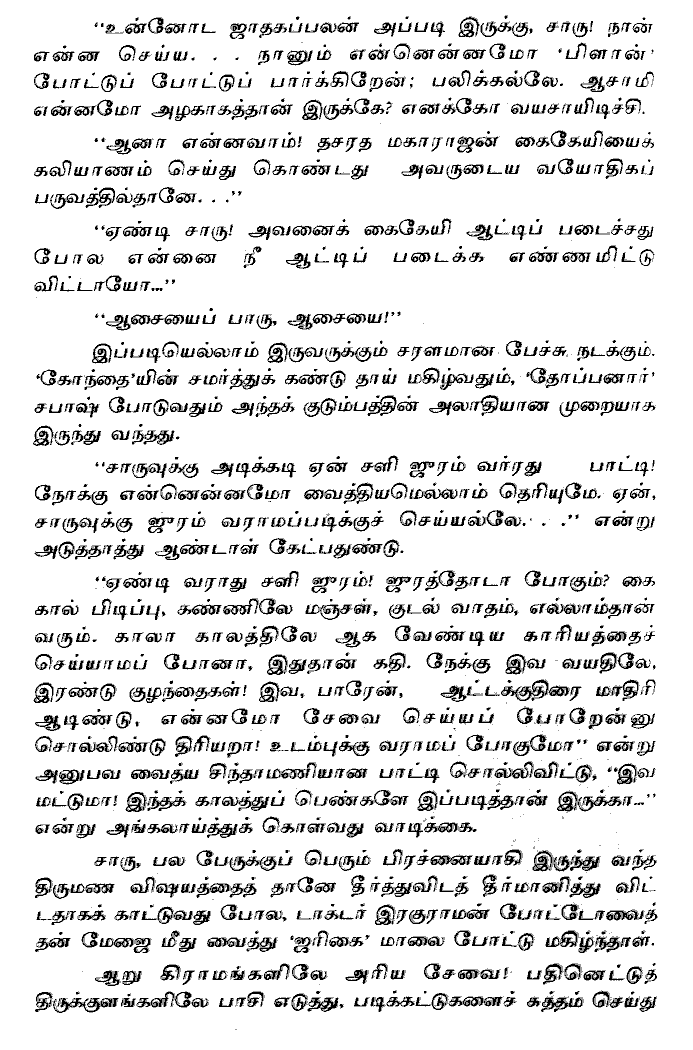 “உன்னோட ஜாதகப்பலன் அப்படி இருக்கு, சாரு! நான்
என்ன செய்ய. . . நானும் என்னென்னமோ ‘பிளான்’
போட்டுப் போட்டுப் பார்க்கிறேன்; பலிக்கல்லே. ஆசாமி
என்னமோ அழகாகத்தான் இருக்கே? எனக்கோ வயசாயிடிச்சி.
“ஆனா என்னவாம்! தசரத மகாராஜன் கைகேயியைக்
கலியாணம் செய்து கொண்டது அவருடைய வயோதிகப்
பருவத்தில்தானே. . .”
“ஏண்டி சாரு! அவனைக் கைகேயி ஆட்டிப் படைச்சது
போல என்னை நீ ஆட்டிப் படைக்க எண்ணமிட்டு
விட்டாயோ...”
“ஆசையைப் பாரு, ஆசையை!”
இப்படியெல்லாம் இருவருக்கும் சரளமான பேச்சு நடக்கும்.
‘கோந்தை’யின் சமர்த்துக் கண்டு தாய் மகிழ்வதும், ‘தோப்பனார்’
சபாஷ் போடுவதும் அந்தக் குடும்பத்தின் அலாதியான முறையாக
இருந்து வந்தது.
“சாருவுக்கு அடிக்கடி ஏன் சளி ஜுரம் வர்ரது பாட்டி!
நோக்கு என்னென்னமோ வைத்தியமெல்லாம் தெரியுமே. ஏன்,
சாருவுக்கு ஜுரம் வராமப்படிக்குச் செய்யல்லே. . .” என்று
அடுத்தாத்து ஆண்டாள் கேட்பதுண்டு.
“ஏண்டி வராது சளி ஜுரம்! ஜுரத்தோடா போகும்? கை
கால் பிடிப்பு, கண்ணிலே மஞ்சள், குடல் வாதம், எல்லாம்தான்
வரும். காலா காலத்திலே ஆக வேண்டிய காரியத்தைச்
செய்யாமப் போனா, இதுதான் கதி. நேக்கு இவ வயதிலே,
இரண்டு குழந்தைகள்! இவ, பாரேன், ஆட்டக்குதிரை மாதிரி
ஆடிண்டு, என்னமோ சேவை செய்யப் போறேன்னு
சொல்லிண்டு திரியறா! உடம்புக்கு வராமப் போகுமோ” என்று
அனுபவ வைத்ய சிந்தாமணியான பாட்டி சொல்லிவிட்டு, “இவ
மட்டுமா! இந்தக் காலத்துப் பெண்களே இப்படித்தான் இருக்கா...”
என்று அங்கலாய்த்துக் கொள்வது வாடிக்கை.
சாரு, பல பேருக்குப் பெரும் பிரச்னையாகி இருந்து வந்த
திருமண விஷயத்தைத் தானே தீர்த்துவிடத் தீர்மானித்து விட்
டதாகக் காட்டுவது போல, டாக்டர் இரகுராமன் போட்டோவைத்
தன் மேஜை மீது வைத்து ‘ஜரிகை’ மாலை போட்டு மகிழ்ந்தாள்.
ஆறு கிராமங்களிலே அரிய சேவை! பதினெட்டுத்
திருக்குளங்களிலே பாசி எடுத்து, படிக்கட்டுகளைச் சுத்தம் செய்து